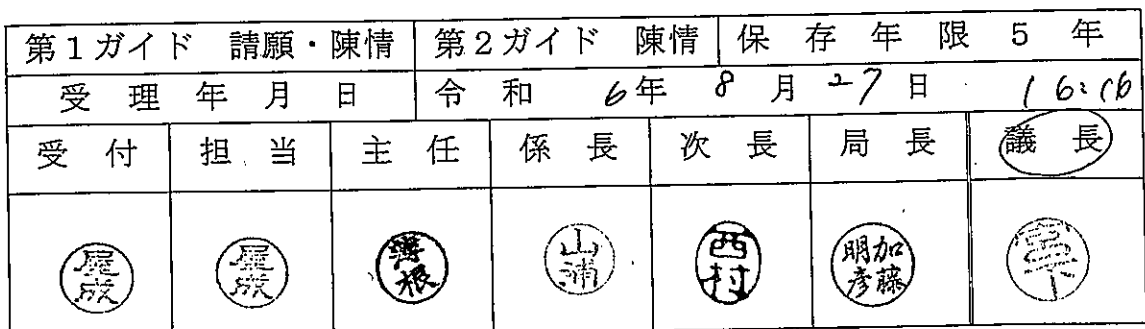 第1ガイド 請願・陳情 第2ガイド 陳情 保存年限5年
受理年月日 令和 6年 8月 27日 16:16
受付 担当 主任 係長 次長 局長 議長
山浦 西村 加藤明彦